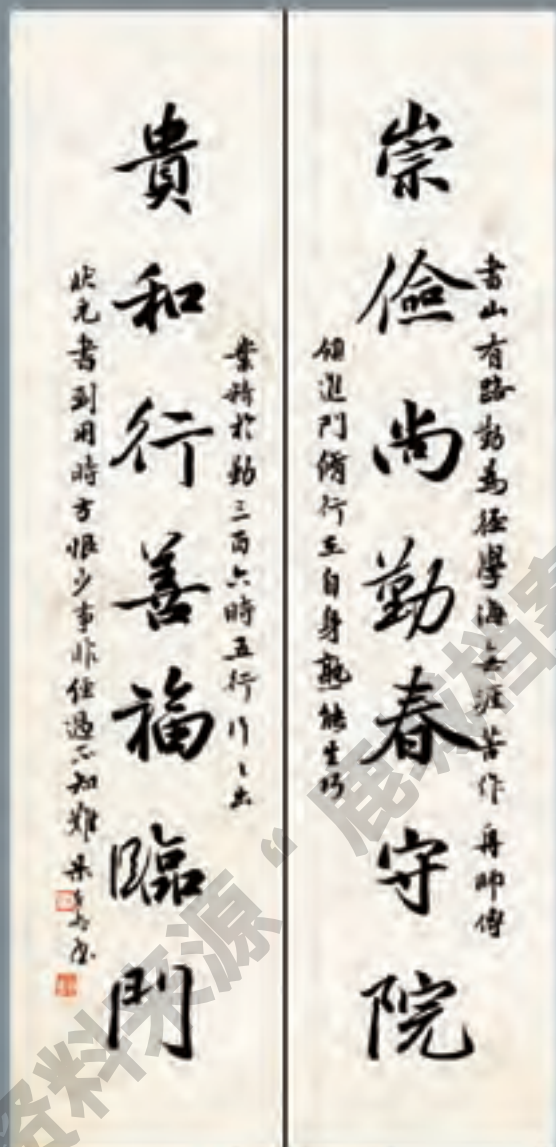 崇儉尚勤春守院
書山有路勤為徑學海無涯苦作舟師傅
領進門修行在自身熟能生巧
貴和行善福臨門
業精於勤三百六時五行行行出
狀元書到用時方恨少事非經過不知難
資料來源“鹿城档案